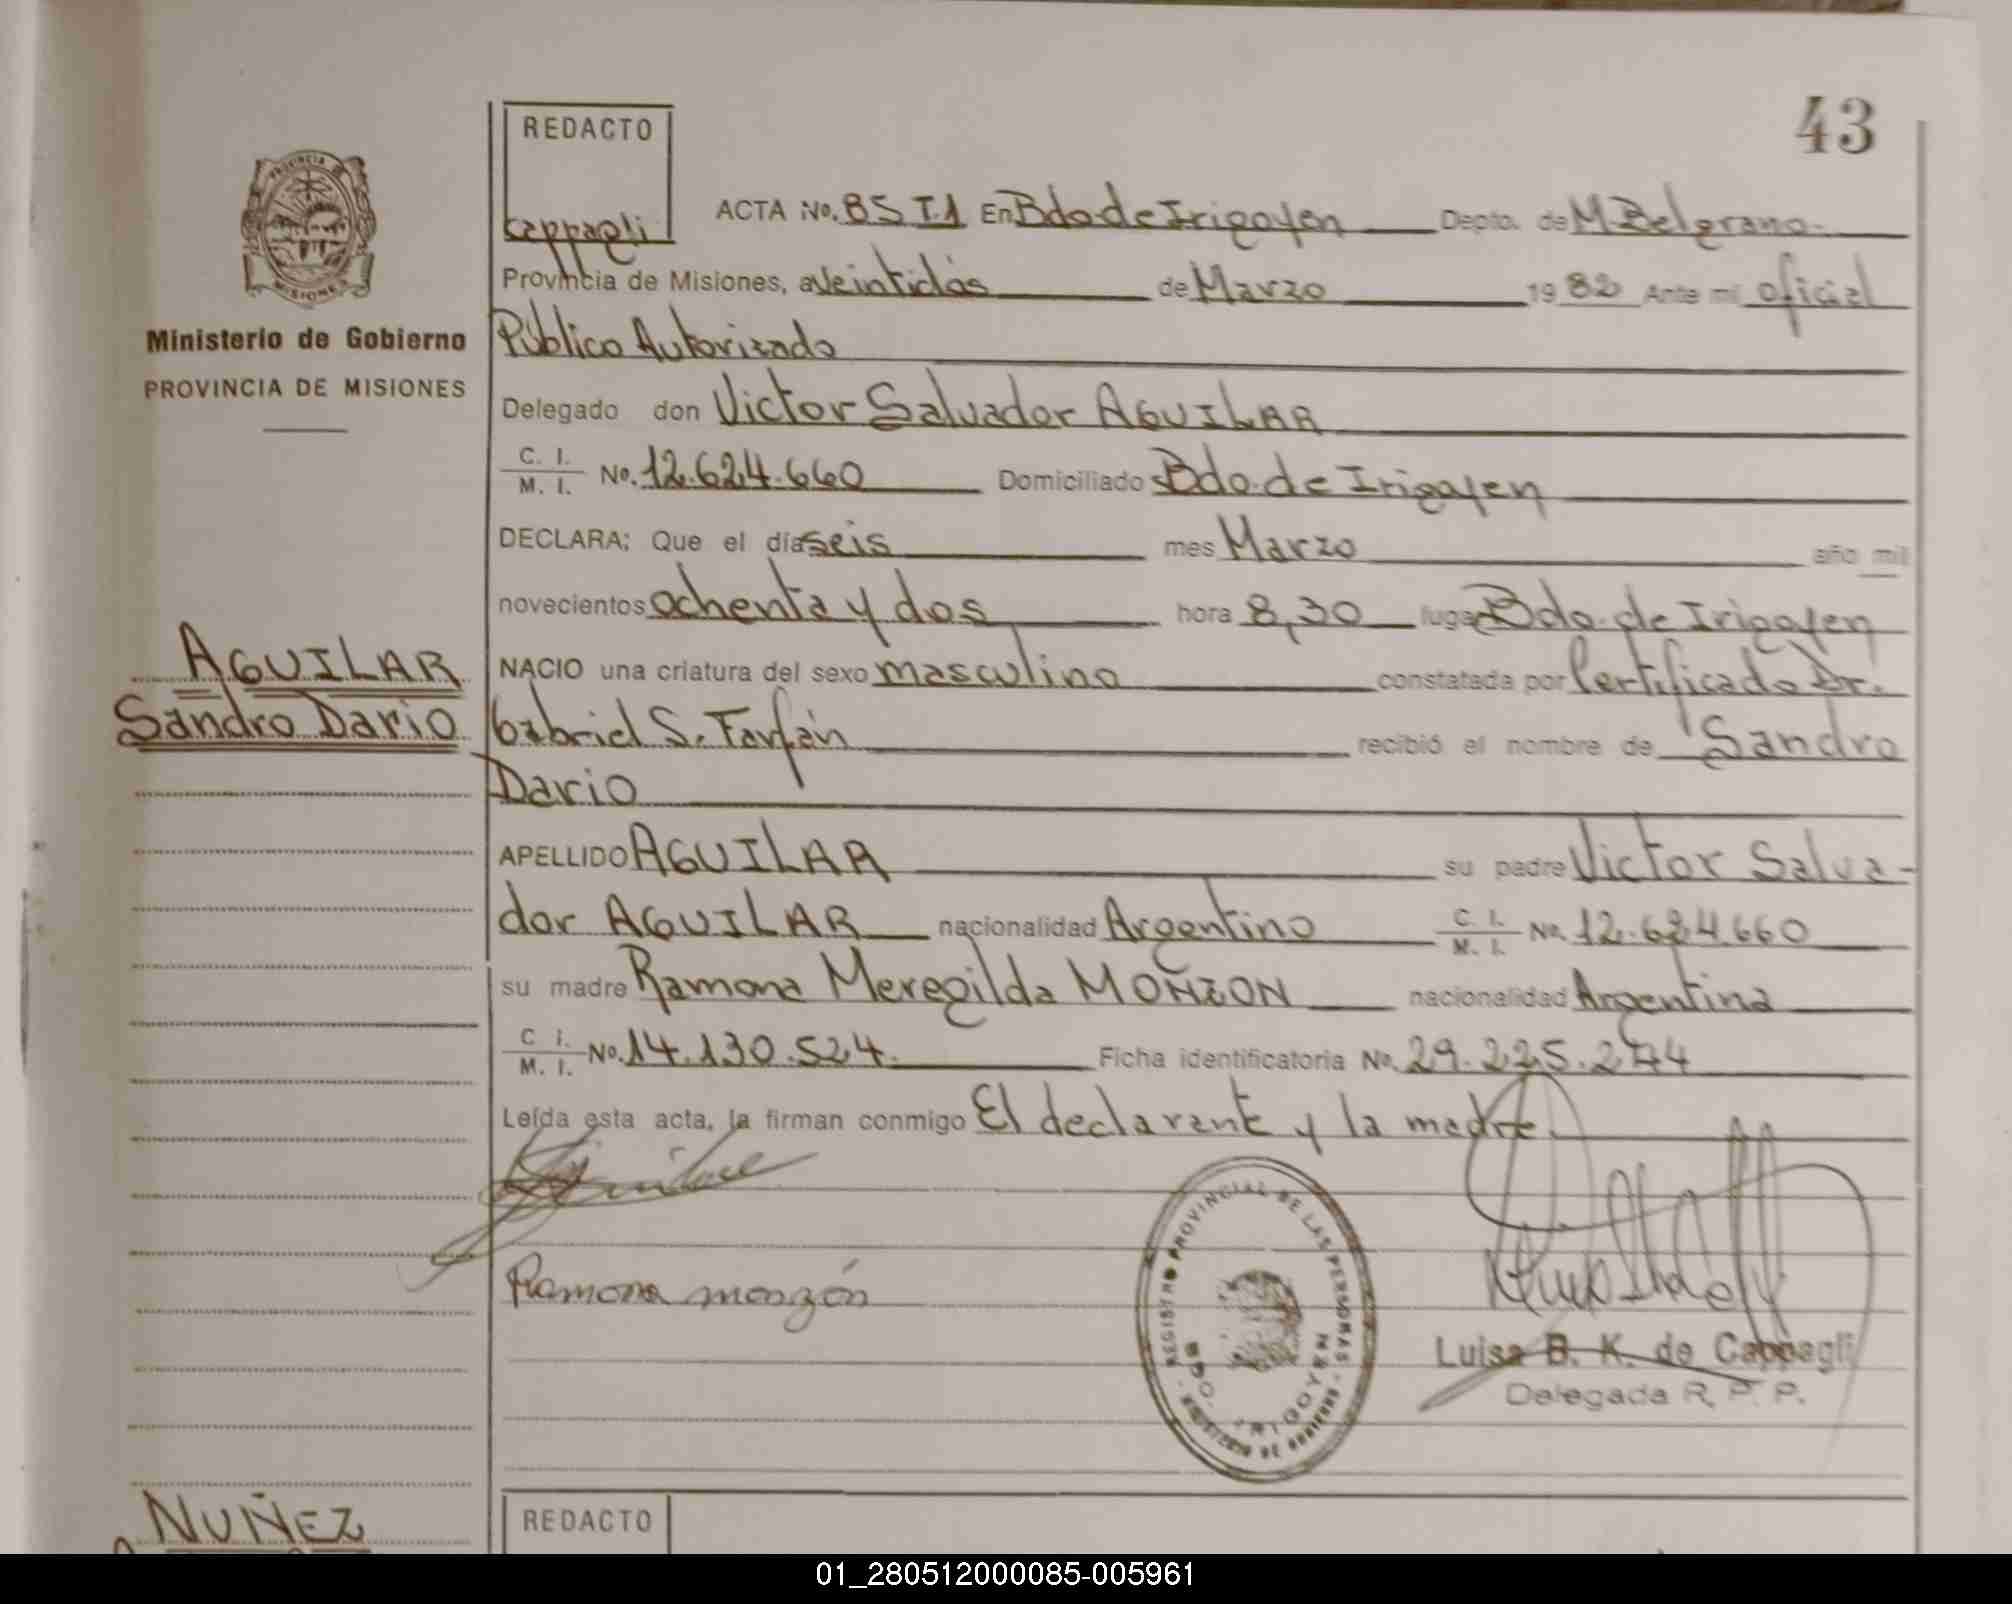 43
REDACTO
Cappagli
PROVINCIA DE
MISIONES
Ministerio de Gobierno
PROVINCIA DE MISIONES
ACTA No. 85 T.1 En Bdo. de Irigoyen Depto. de M Belgrano.
Provincia de Misiones, a Veintidós de Marzo 1982 Ante mi oficial
Público Autorizado
Delegado don Victor Salvador AGUILAR
C. I. / M. I. No. 12.624.660 Domiciliado Bdo. de Irigoyen
DECLARA: Que el día seis mes Marzo año mil
novecientos ochenta y dos hora 8,30 lugar Bdo. de Irigoyen
NACIO una criatura del sexo masculino constatada por Certificado Dr.
Gabriel S. Farfán recibió el nombre de Sandro
Dario
APELLIDO AGUILAR su padre Victor Salva-
dor AGUILAR nacionalidad Argentino C. I. / M. I. No. 12.624.660
su madre Ramona Meregilda MOÑZON nacionalidad Argentina
C. I. / M. I. No. 14.130.524. Ficha identificatoria No. 29.225.244
Leída esta acta, la firman conmigo El declarante y la madre.
AGUILAR
Sandro Dario
Ramona monzón
REGISTRO PROVINCIAL DE LAS PERSONAS
BDO. IRIGOYEN
Luisa B. K. de Cappagli
Delegada R. P. P.
NUÑEZ
REDACTO
01_280512000085-005961